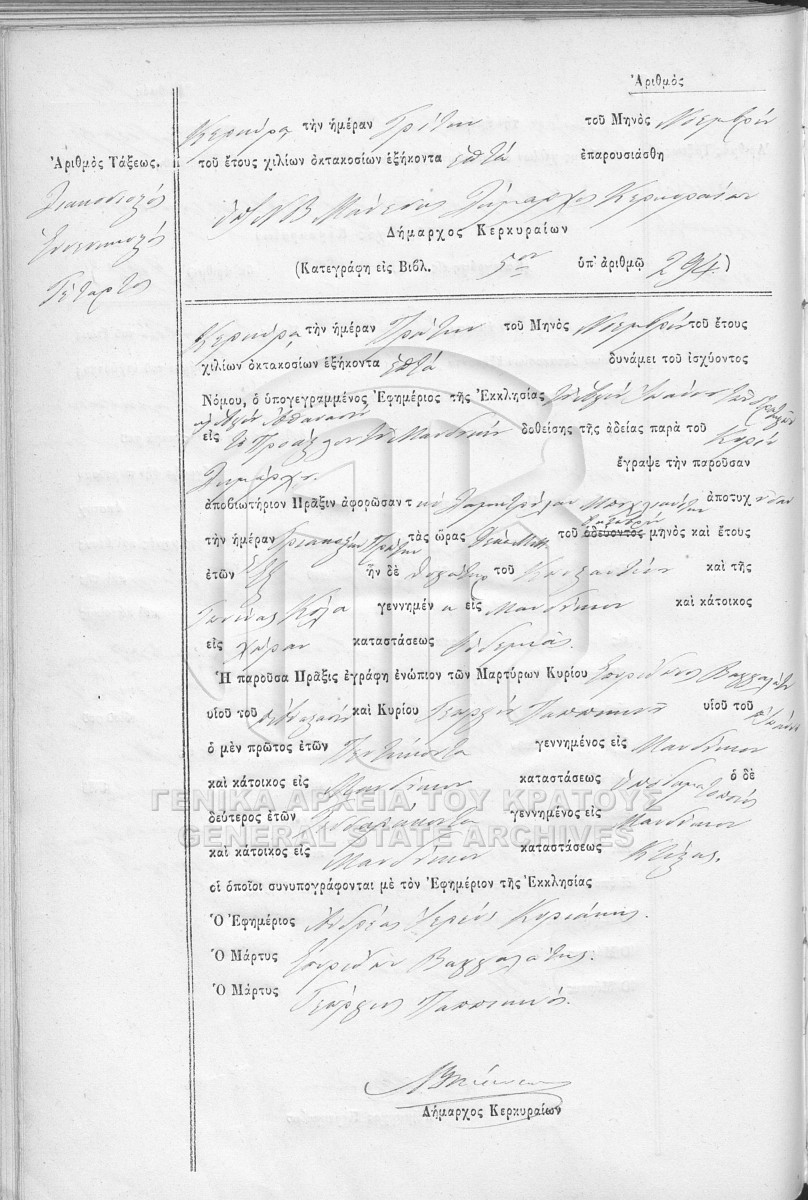 Ἀριθμὸς
Κερκύρα τὴν ἡμέραν Τρίτην τοῦ Μηνὸς Νοεμβρίου
Ἀριθμὸς Τάξεως. τοῦ ἔτους χιλίων ὀκτακοσίων ἑξήκοντα ἑπτά ἐπαρουσιάσθη
Διακοσιοστός
Ἐννενηκοστός
Τέταρτος
Δήμαρχος Κερκυραίων
Δήμαρχος Κερκυραίων
(Κατεγράφη εἰς Βιβλ. 5ον ὑπ' ἀριθμῷ 294.)
Κερκύρα τὴν ἡμέραν Πρώτην τοῦ Μηνὸς Νοεμβρίου τοῦ ἔτους
χιλίων ὀκτακοσίων ἑξήκοντα ἑπτά δυνάμει τοῦ ἰσχύοντος
Νόμου, ὁ ὑπογεγραμμένος Ἐφημέριος τῆς Ἐκκλησίας
εἰς τὸ Προάστειον Μανδούκιον δοθείσης τῆς ἀδείας παρὰ τοῦ Κυρίου
Δημάρχου ἔγραψε τὴν παροῦσαν
ἀποβιωτήριον Πρᾶξιν ἀφορῶσαν τ ἀποτυχ
Ὀκτωβρίου
τὴν ἡμέραν Τριακοστὴν Πρώτην τὰς ὥρας τοῦ ὁδεύοντος μηνὸς καὶ ἔτους
ἐτῶν Ἕξ ἦν δὲ θυγάτηρ τοῦ Κωνσταντίνου καὶ τῆς
Κόλα γεννημέν α εἰς Μανδούκιον καὶ κάτοικος
εἰς χώραν καταστάσεως Οὐδεμιᾶς.
Ἡ παροῦσα Πρᾶξις ἐγράφη ἐνώπιον τῶν Μαρτύρων Κυρίου Σπυρίδωνος
υἱοῦ τοῦ Ἀθανασίου καὶ Κυρίου Γεωργίου υἱοῦ τοῦ
ὁ μὲν πρῶτος ἐτῶν Πεντήκοντα γεννημένος εἰς Μανδούκιον
καὶ κάτοικος εἰς Μανδούκιον καταστάσεως Ὑποδηματοποιός ὁ δὲ
ΓΕΝΙΚΑ ΑΡΧΕΙΑ ΤΟΥ ΚΡΑΤΟΥΣ
δεύτερος ἐτῶν Τεσσαράκοντα γεννημένος εἰς Μανδούκιον
GENERAL STATE ARCHIVES
καὶ κάτοικος εἰς Μανδούκιον καταστάσεως
οἱ ὁποῖοι συνυπογράφονται μὲ τὸν Ἐφημέριον τῆς Ἐκκλησίας
Ὁ Ἐφημέριος Ἀνδρέας Ἱερεύς Κυριάκης.
Ὁ Μάρτυς Σπυρίδων
Ὁ Μάρτυς Γεώργιος
Δήμαρχος Κερκυραίων